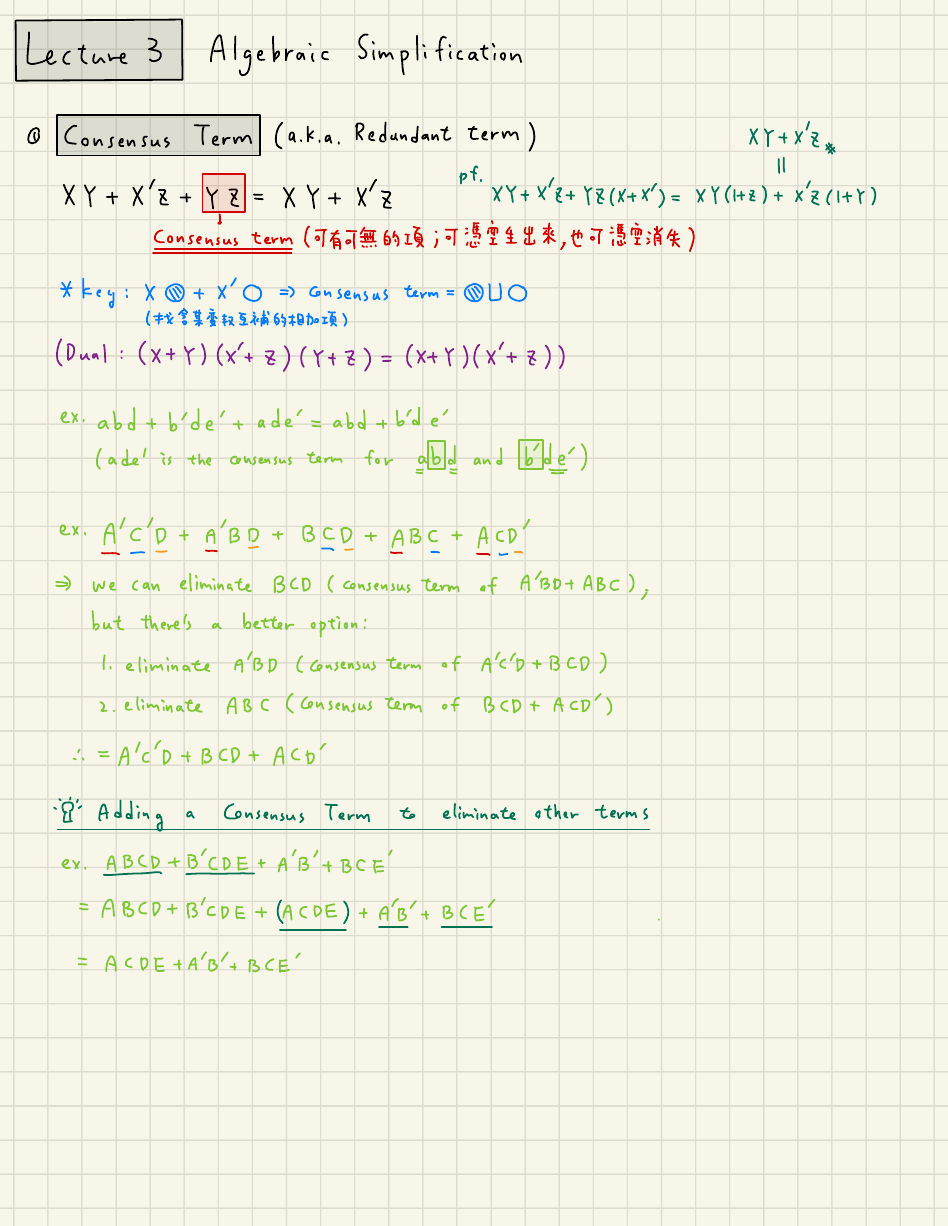 Lecture 3 Algebraic Simplification
① Consensus Term (a.k.a. Redundant term)
XY + X'Z + YZ = XY + X'Z
pf. XY + X'Z + YZ(X+X') = XY(1+Z) + X'Z(1+Y)
=
XY + X'Z※
Consensus term (可有可無的項；可憑空生出來,也可憑空消失)
* key: X ◍ + X' ○ ⇒ consensus term = ◍ ∪ ○
(找含某變數互補的相加項)
(Dual: (X+Y)(X'+Z)(Y+Z) = (X+Y)(X'+Z))
ex. abd + b'de' + ade' = abd + b'de'
(ade' is the consensus term for abd and b'de')
ex. A'C'D + A'BD + BCD + ABC + ACD'
⇒ we can eliminate BCD (consensus term of A'BD + ABC),
but there's a better option:
1. eliminate A'BD (consensus term of A'C'D + BCD)
2. eliminate ABC (consensus term of BCD + ACD')
∴ = A'C'D + BCD + ACD'
Adding a Consensus Term to eliminate other terms
ex. ABCD + B'CDE + A'B' + BCE'
= ABCD + B'CDE + (ACDE) + A'B' + BCE'
= ACDE + A'B' + BCE'